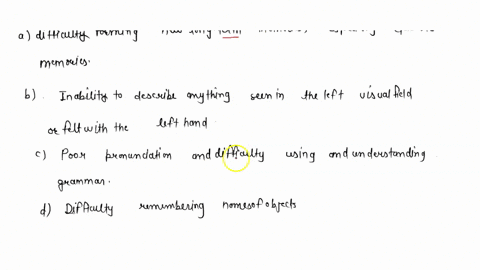 a) difficulty forming new long term memories
memories.
b) . Inability to describe anything seen in the left visual field
or felt with the left hand
c) Poor pronunciation and difficulty using and understanding
grammar.
d) Difficulty remembering names of objects